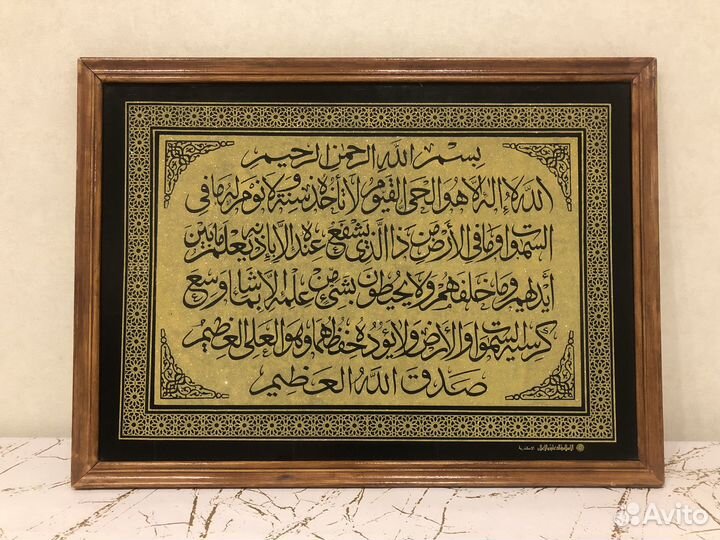 بسم الله الرحمن الرحيم
الله لا إله إلا هو الحي القيوم لا تأخذه سنة ولا نوم له ما في
السموات وما في الأرض من ذا الذي يشفع عنده إلا بإذنه يعلم ما بين
أيديهم وما خلفهم ولا يحيطون بشيء من علمه إلا بما شاء وسع
كرسيه السموات والأرض ولا يؤده حفظهما وهو العلي العظيم
صدق الله العظيم
Avito